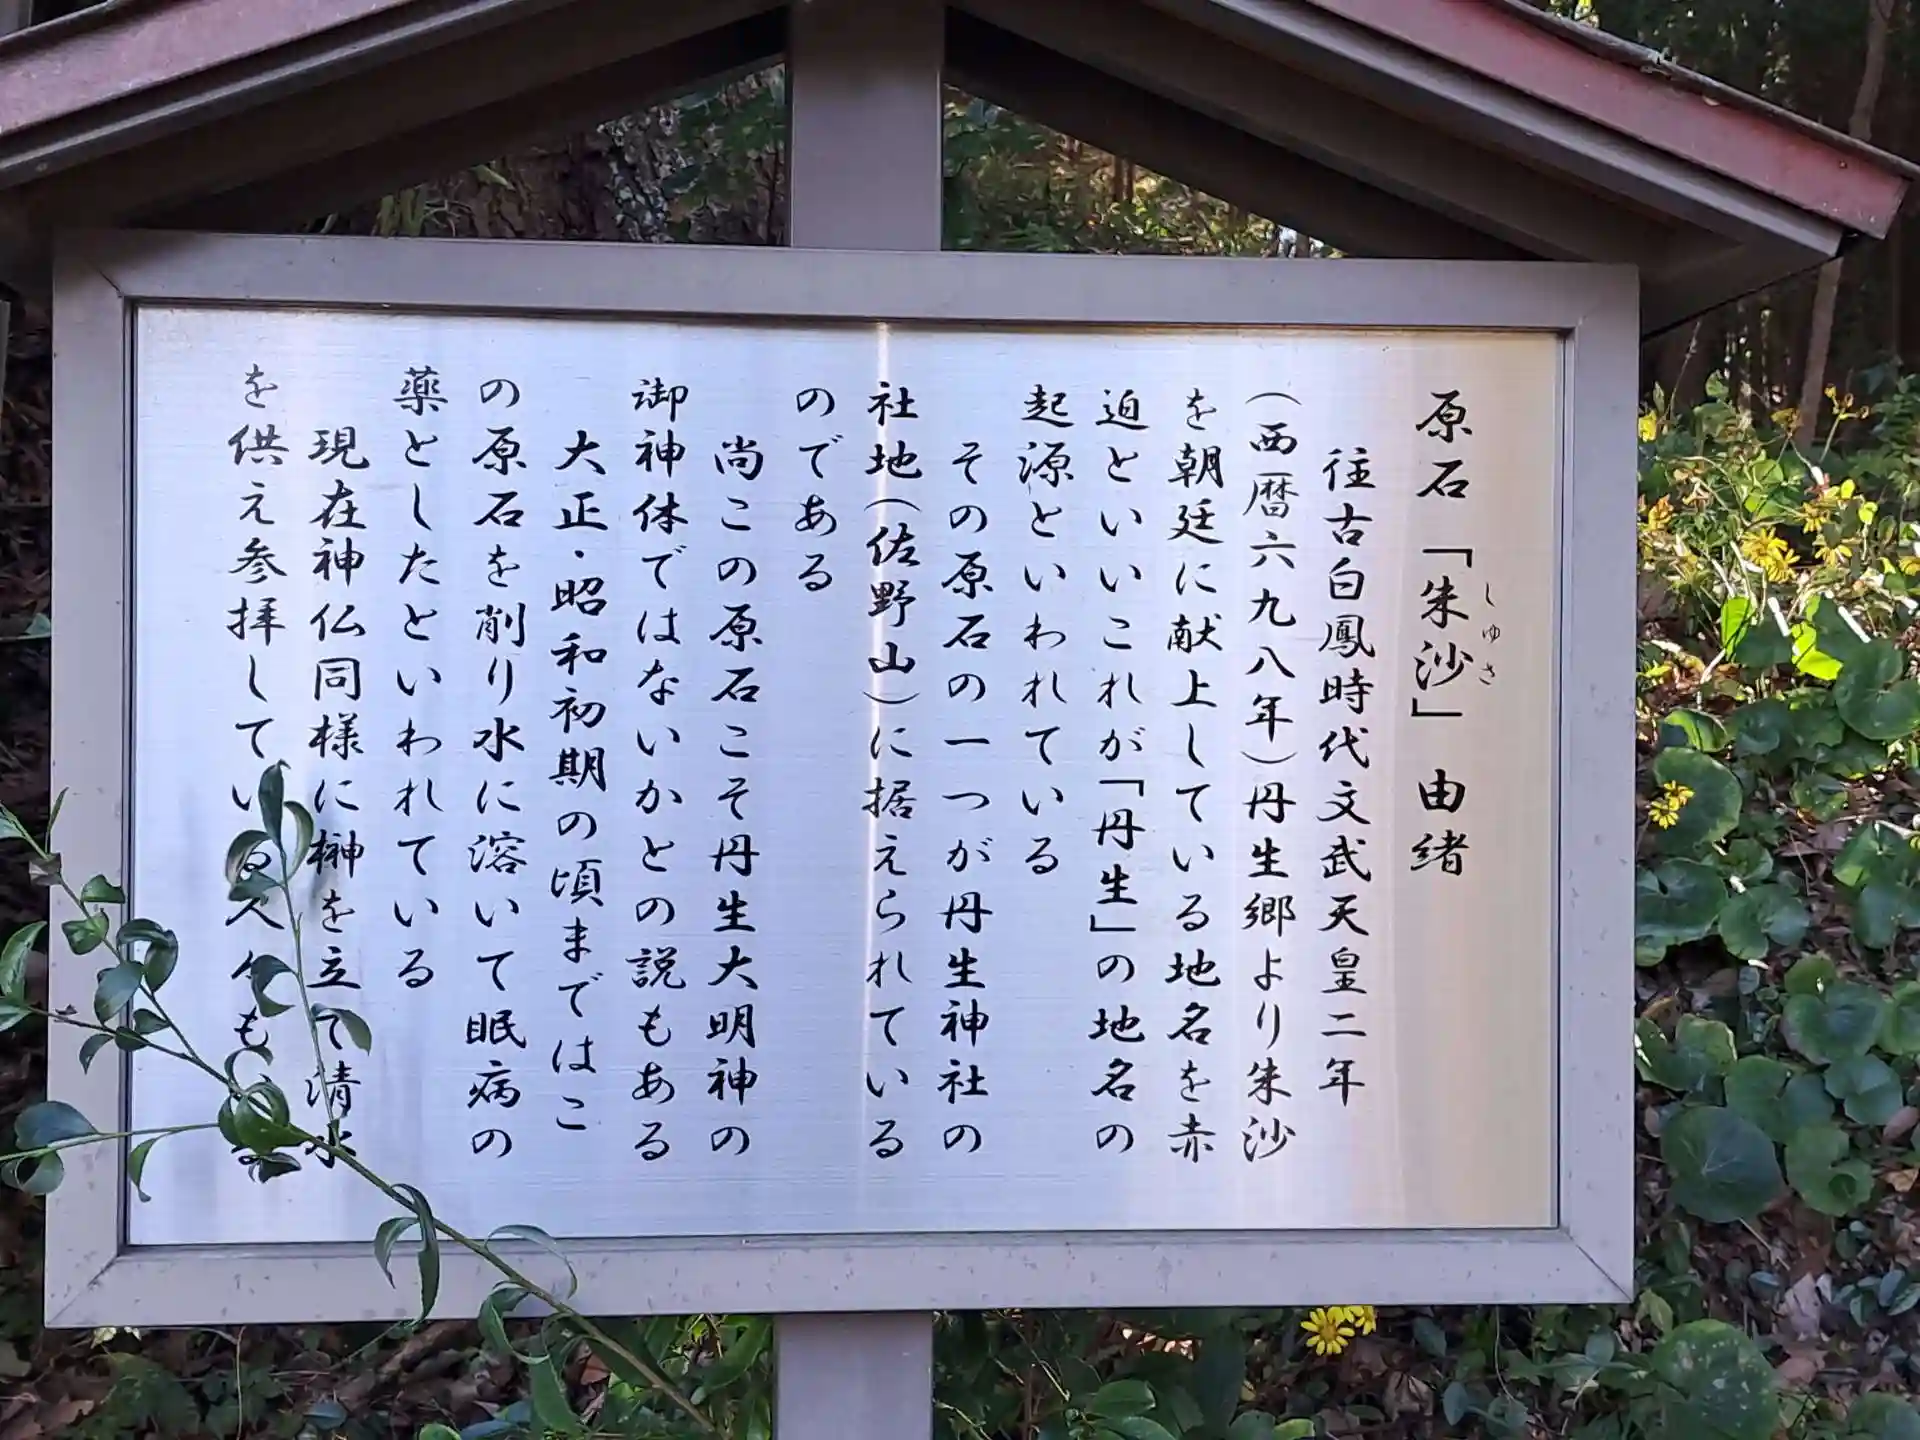 原石「朱沙」由緒
しゅさ
往古白鳳時代文武天皇二年
(西暦六九八年)丹生郷より朱沙
を朝廷に献上している地名を赤
迫といいこれが「丹生」の地名の
起源といわれている
その原石の一つが丹生神社の
社地(佐野山)に据えられている
のである
尚この原石こそ丹生大明神の
御神体ではないかとの説もある
大正・昭和初期の頃まではこ
の原石を削り水に溶いて眠病の
薬としたといわれている
現在神仏同様に榊を立て清水
を供え参拝している人々もいる